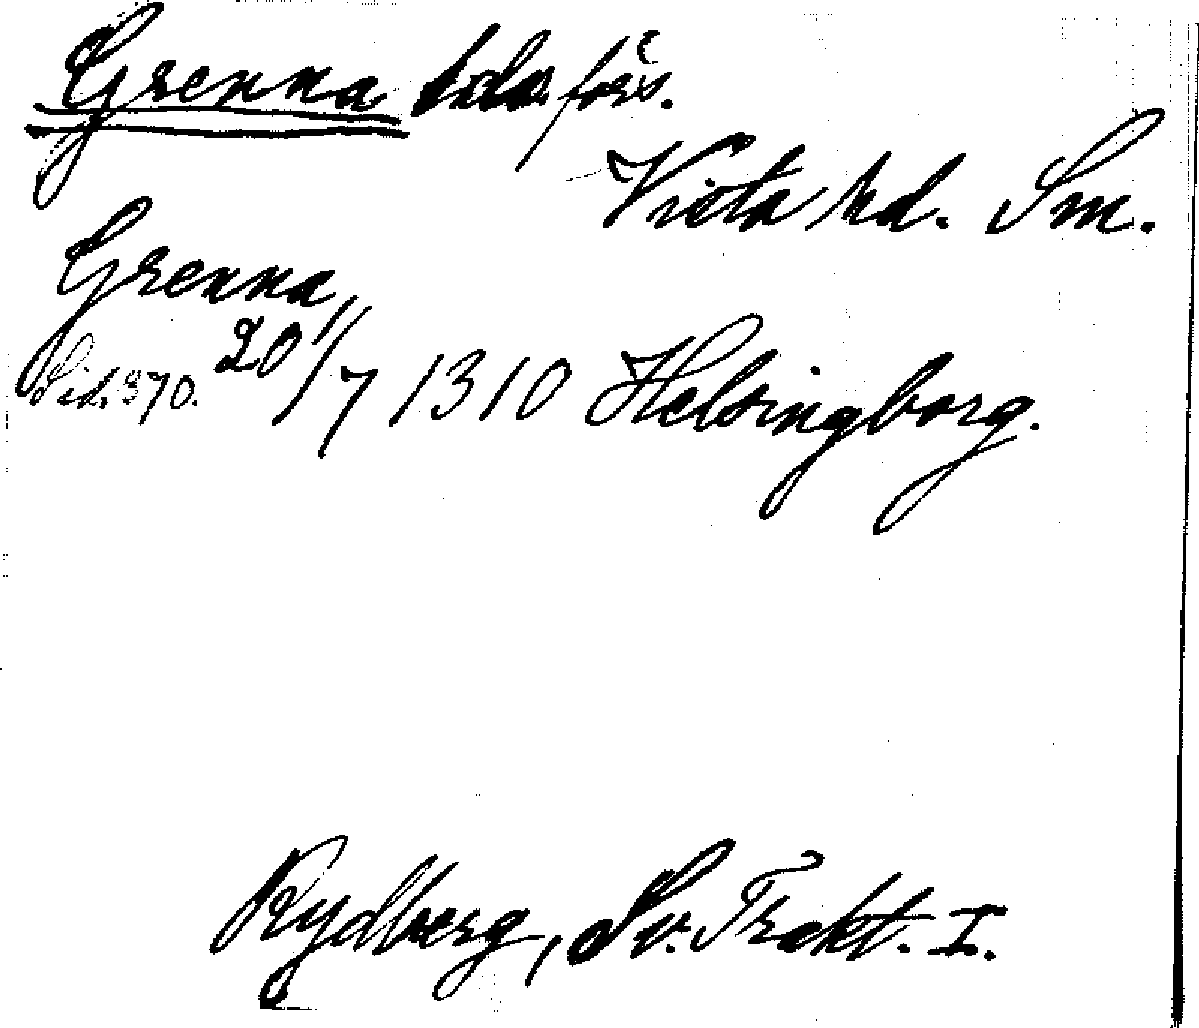 Grenna lds. förs.
Vista hd. Sm.
Grenna,
Sid. 370. 20/7 1310 Helsingborg.
Rydberg, Sv. Trakt. I.